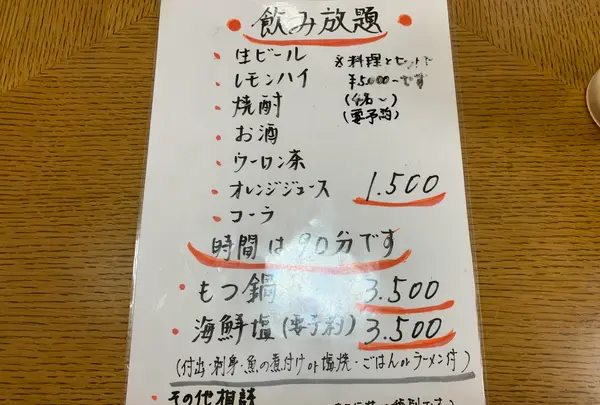 飲み放題
・生ビール
・レモンハイ
・焼酎
・お酒
・ウーロン茶
・オレンジジュース 1.500
・コーラ
※料理とセットで
¥5.000~です
(4名~)
(要予約)
時間は90分です
・もつ鍋 3.500
・海鮮塩(要予約) 3.500
(付出・刺身・魚の煮付けor塩焼・ごはんorラーメン付)
・その他相談